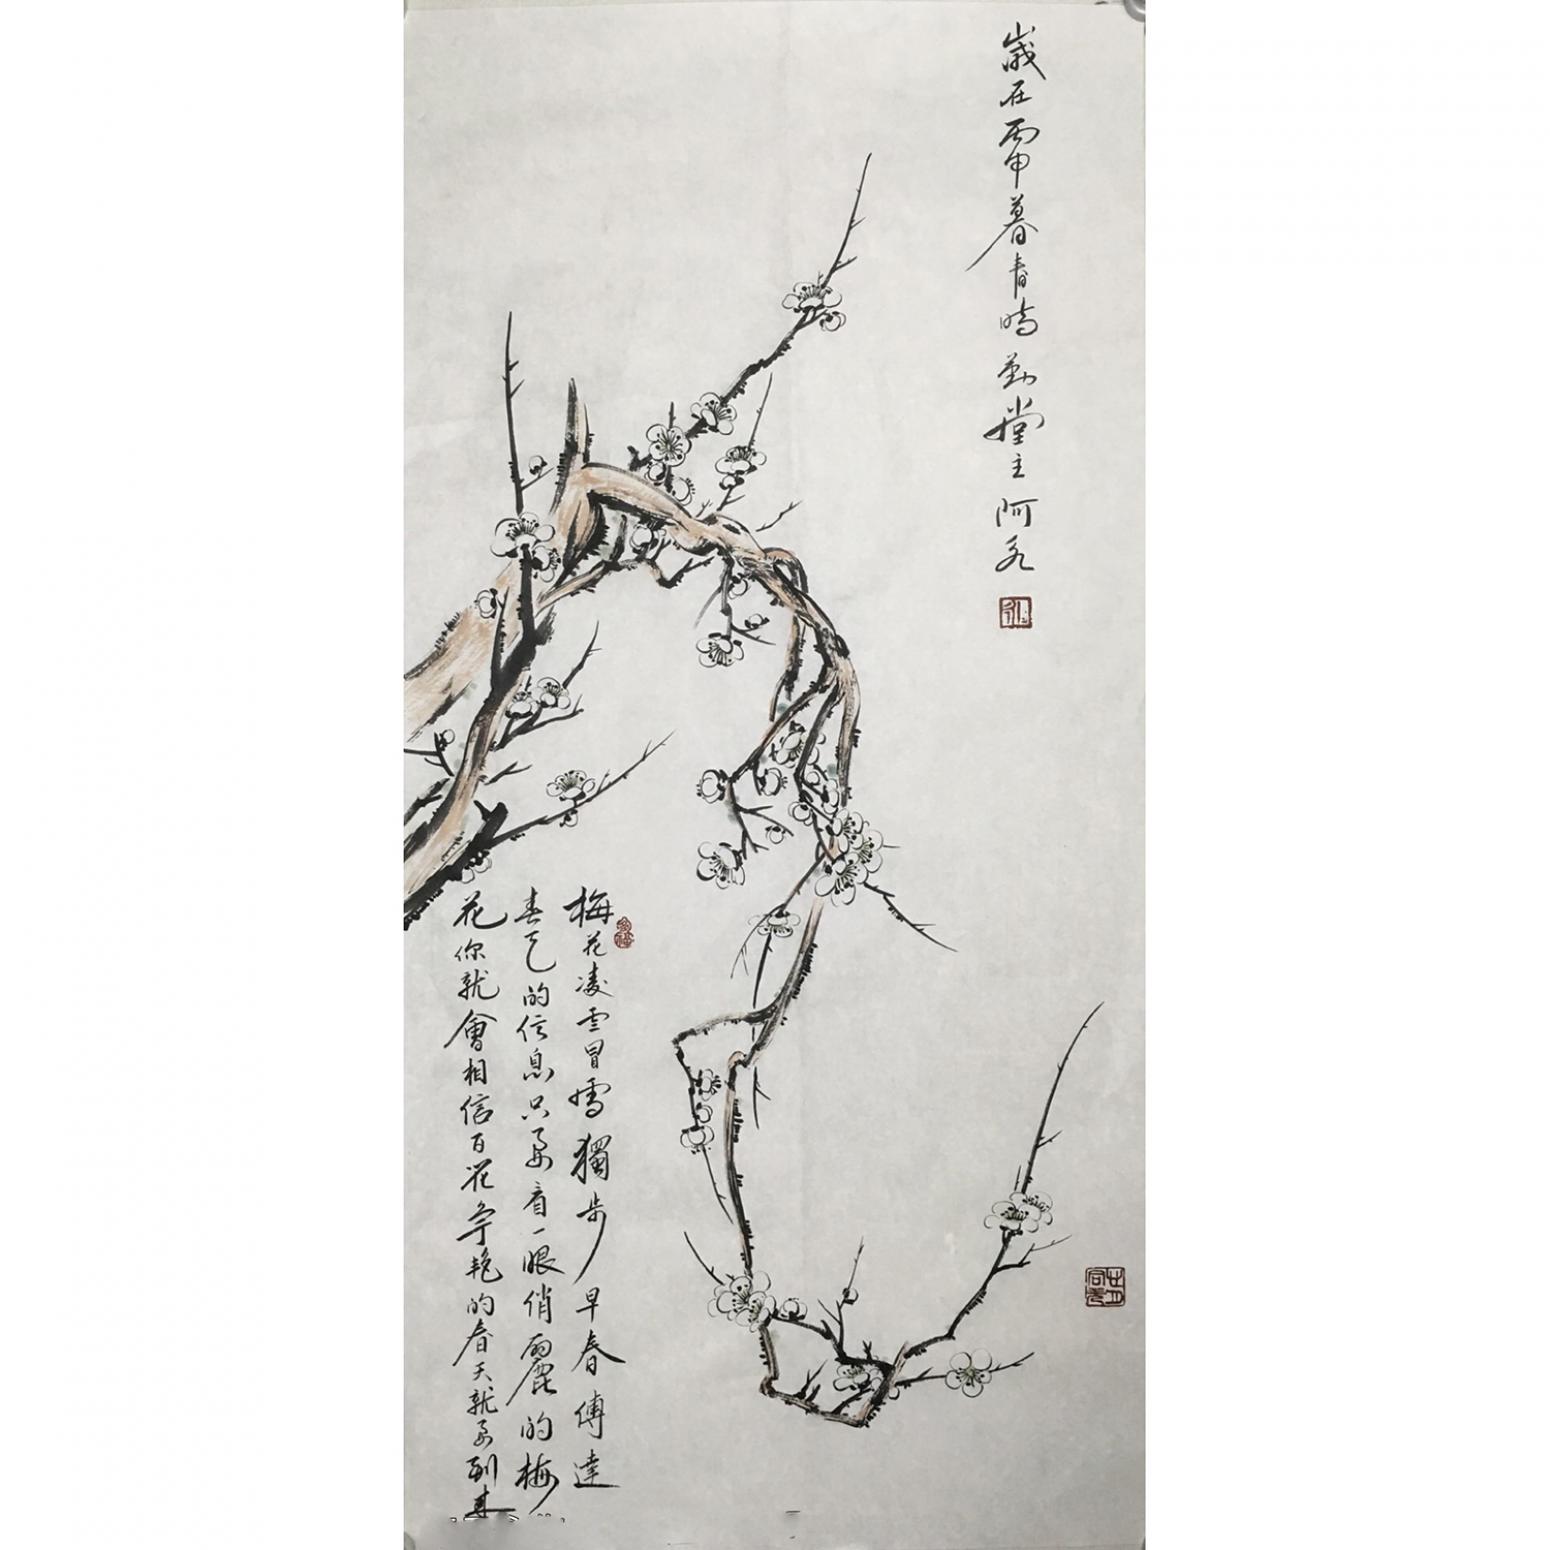 歲在丙申暮春時勤堂主阿永
梅花凌雲冒雪獨步早春傳達
春天的信息只要看一眼俏麗的梅
花你就會相信百花争艳的春天就要到来